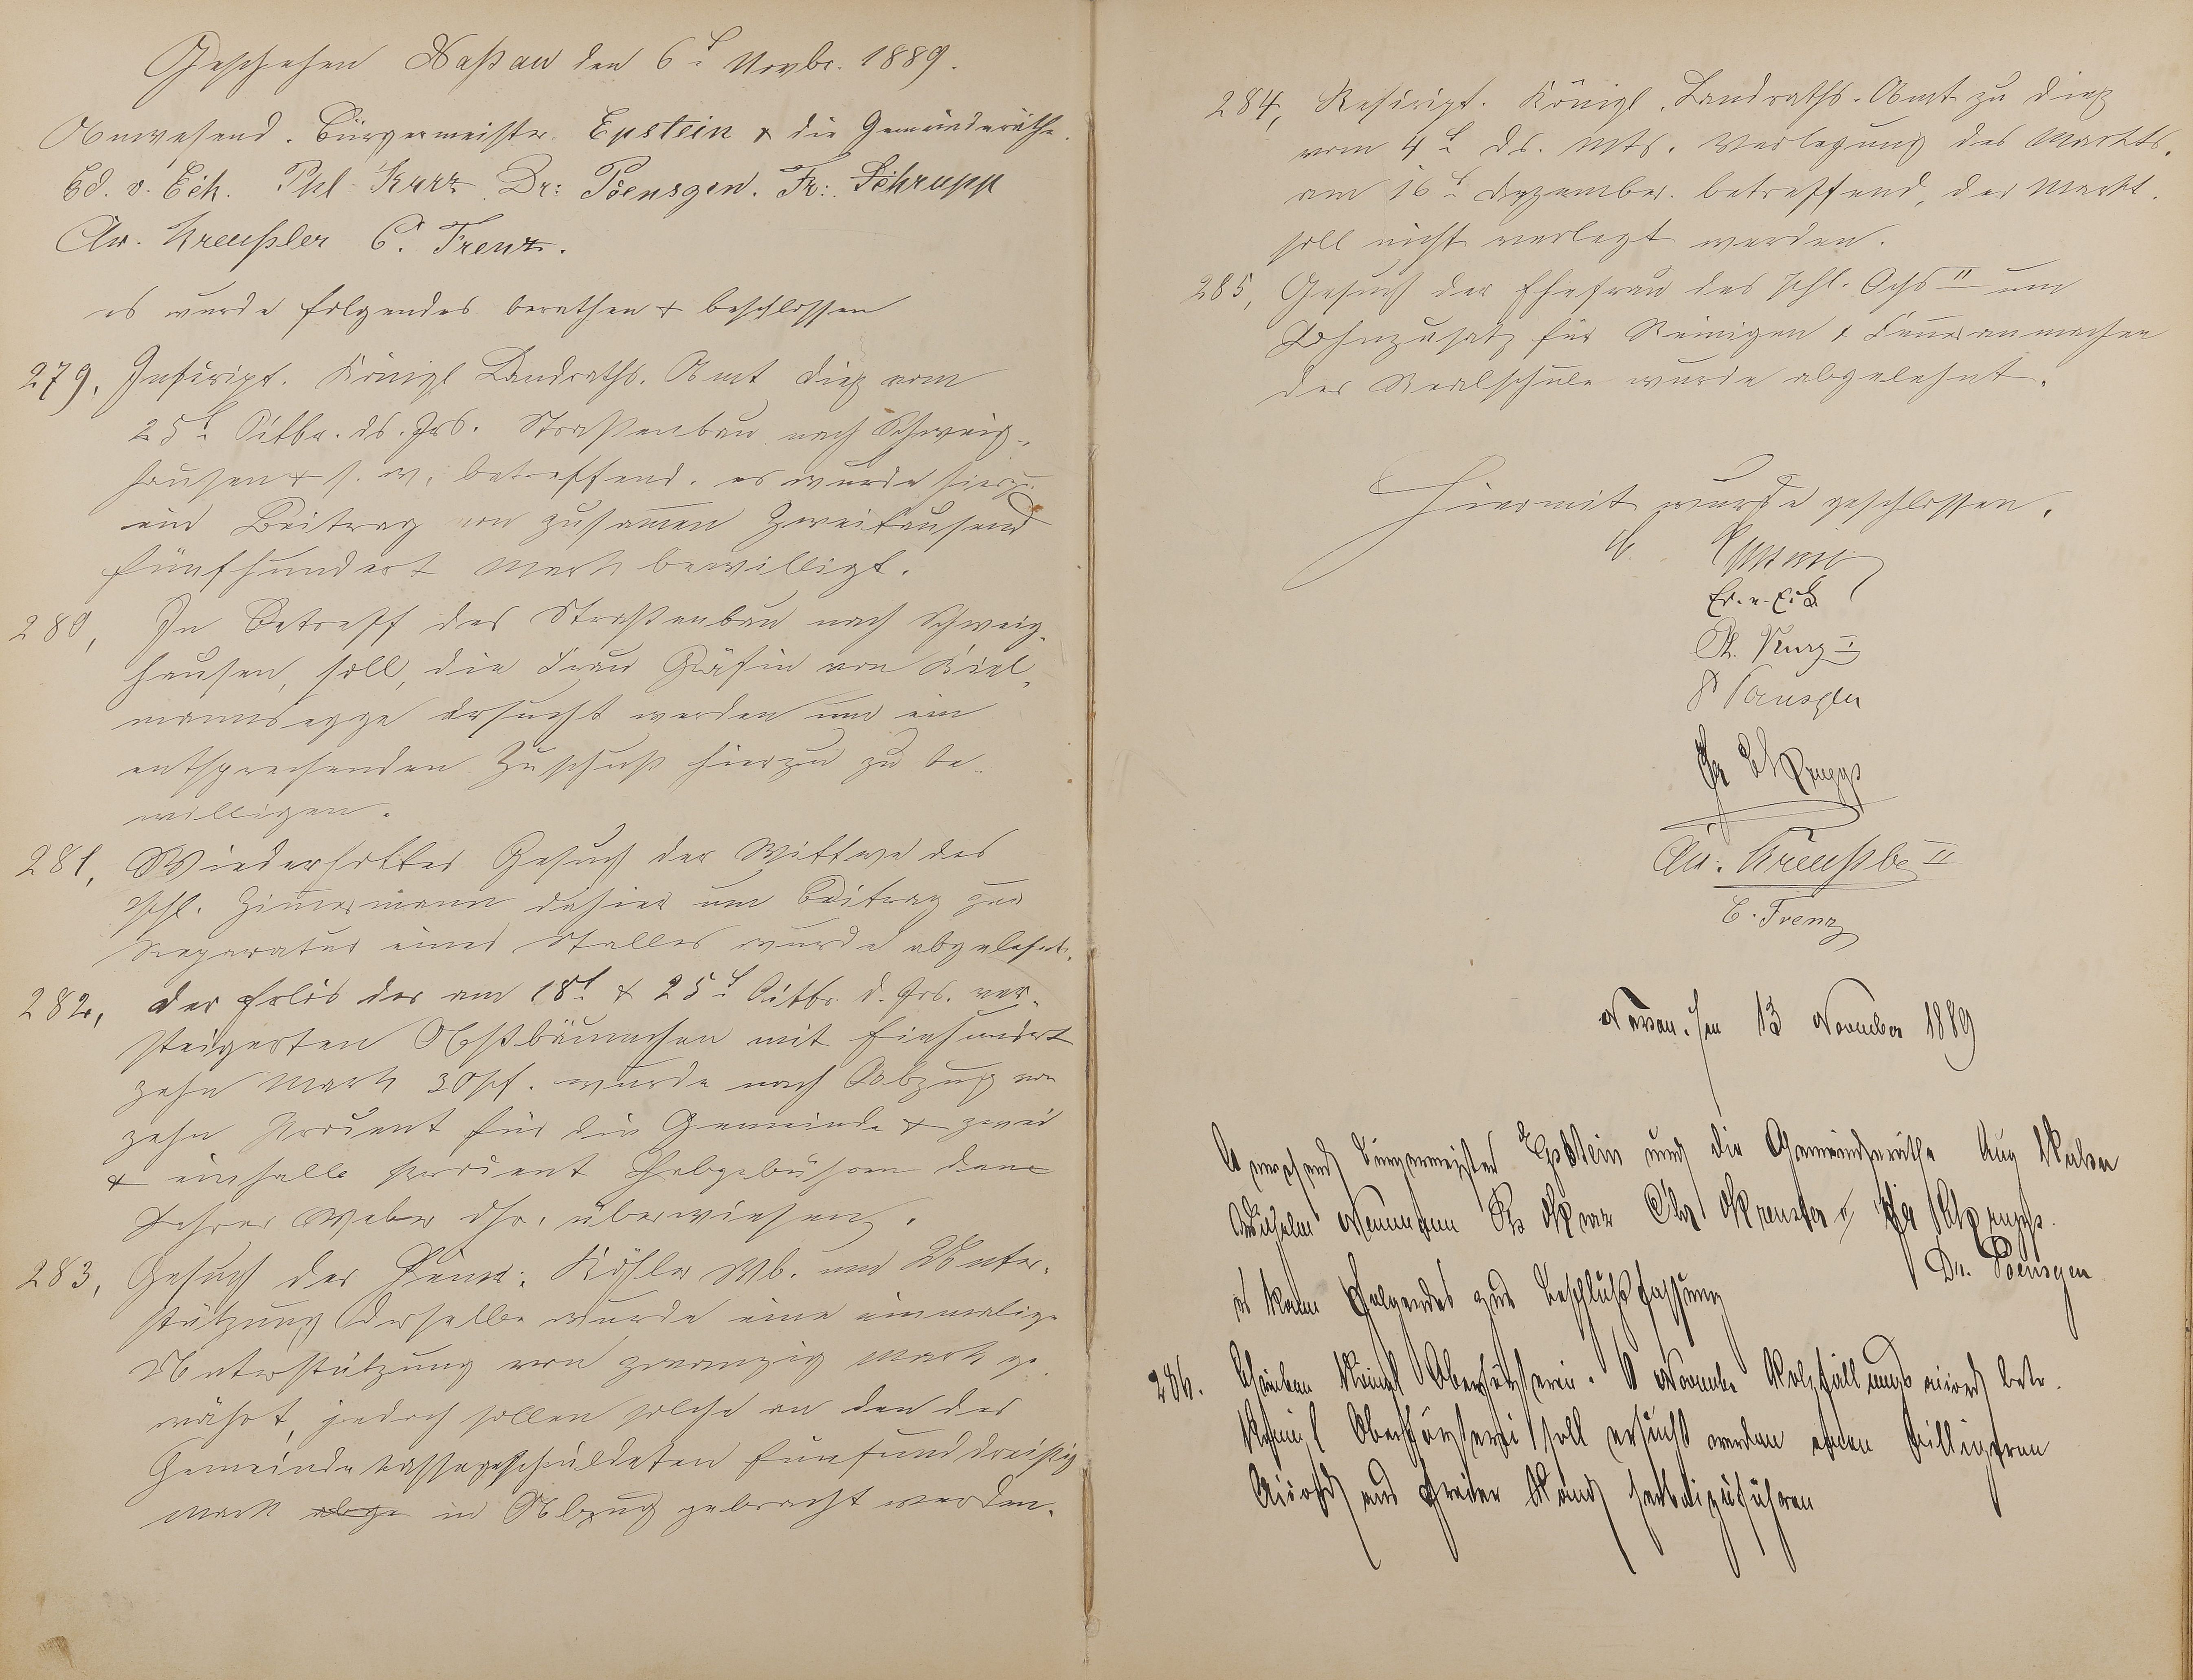 Geschehen Naßau den 6t Novbr. 1889.
Anwesend. Bürgermeister Epstein & die Gemeinderäthe.
Ed. v. Eck. Phl. Kurz Dr: Poensgen. Fr: Schrupp
Au. Kreußler C. Trenz.
es wurde folgendes berathen & beschlossen
279. Inscript. Königl Landraths. Amt Diez vom
25t Octbr. ds. Jrs. Straßenbau nach Schweig-
hausen & s. w. betreffend. es wurde hierzu
ein Beitrag von zusam̄en Zweitausend
fünfhundert Mark bewilligt.
280, In Betreff des Straßenbau nach Schweig-
hausen, soll, die Frau Gräfin von Kiel-
mannsegge ersucht werden um ein
entsprechenden Zuschuß hierzu zu be-
willigen.
281, Wiederholtes Gesuch der Wittwe des
Phl. Zim̄ermann dahier um Beitrag zur
Reparatur eines Stalles wurde abgelehnt.
282, Der Erlös der am 18t & 25t Octbr. d. Jrs. ver-
steigerten Obstbäumchen mit Einhundert
zehn Mark 30 Pf. wurde nach Abzug von
zehn Procent für die Gemeinde & zwei
& einhalb Procent Hebgebühren dem
Lehrer Weber dhr. überwiesen.
283, Gesuch des Heinr: Köhler Wb. um Unter-
stützung derselbe wurde eine einmalige
Unterstützung von zwanzig Mark ge-
währt, jedoch sollen solche an den der
Gemeindekasse geschuldeten fünfunddreißig
Mark abge in Abzug gebracht werden.
284, Rescript. Königl. Landraths-Amt zu Diez
vom 4t ds. Mts. Verlegung des Markts.
am 16t Dezember. betreffend, der Markt.
soll nicht verlegt werden.
285, Gesuch der Ehefrau des Phl. Ochs II um
Lohnzusatz für Reinigen & Feueranmachen
der Realschule wurde abgelehnt.
Hiermit wurde geschlossen.
Epstein
Ed. v. Eck
Ph. Kurz I
Dr Poensgen
Fr Schrupp
Au. Kreußler II
C. Trenz
Nassau. den 13 November 1889
Anwesend Bürgermeister Epstein und die Gemeinderäthe Aug
Wilhelm Ph Kurz Chr Kreusler & Fr Schrupp.
Dr. Poensgen
es kam Folgendes zur Beschlußfassung
286. Schreiben Königl Oberförsterei. November Holzfällungs accord betr.
Königl Oberförsterei soll ersucht werden einen billigeren
Accord aus freier Hand herbeizuführen